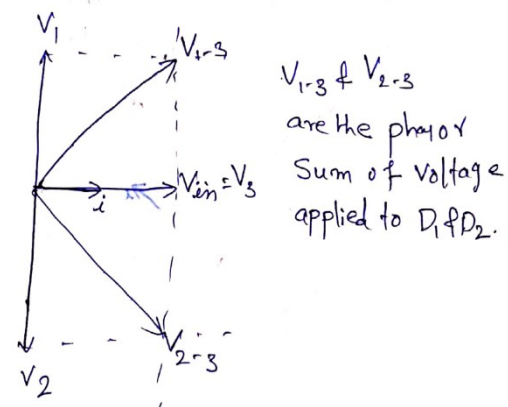 V1
V1-3
i
Vin = V3
V2-3
V2
V1-3 & V2-3
are the phasor
Sum of voltage
applied to D1 & D2.